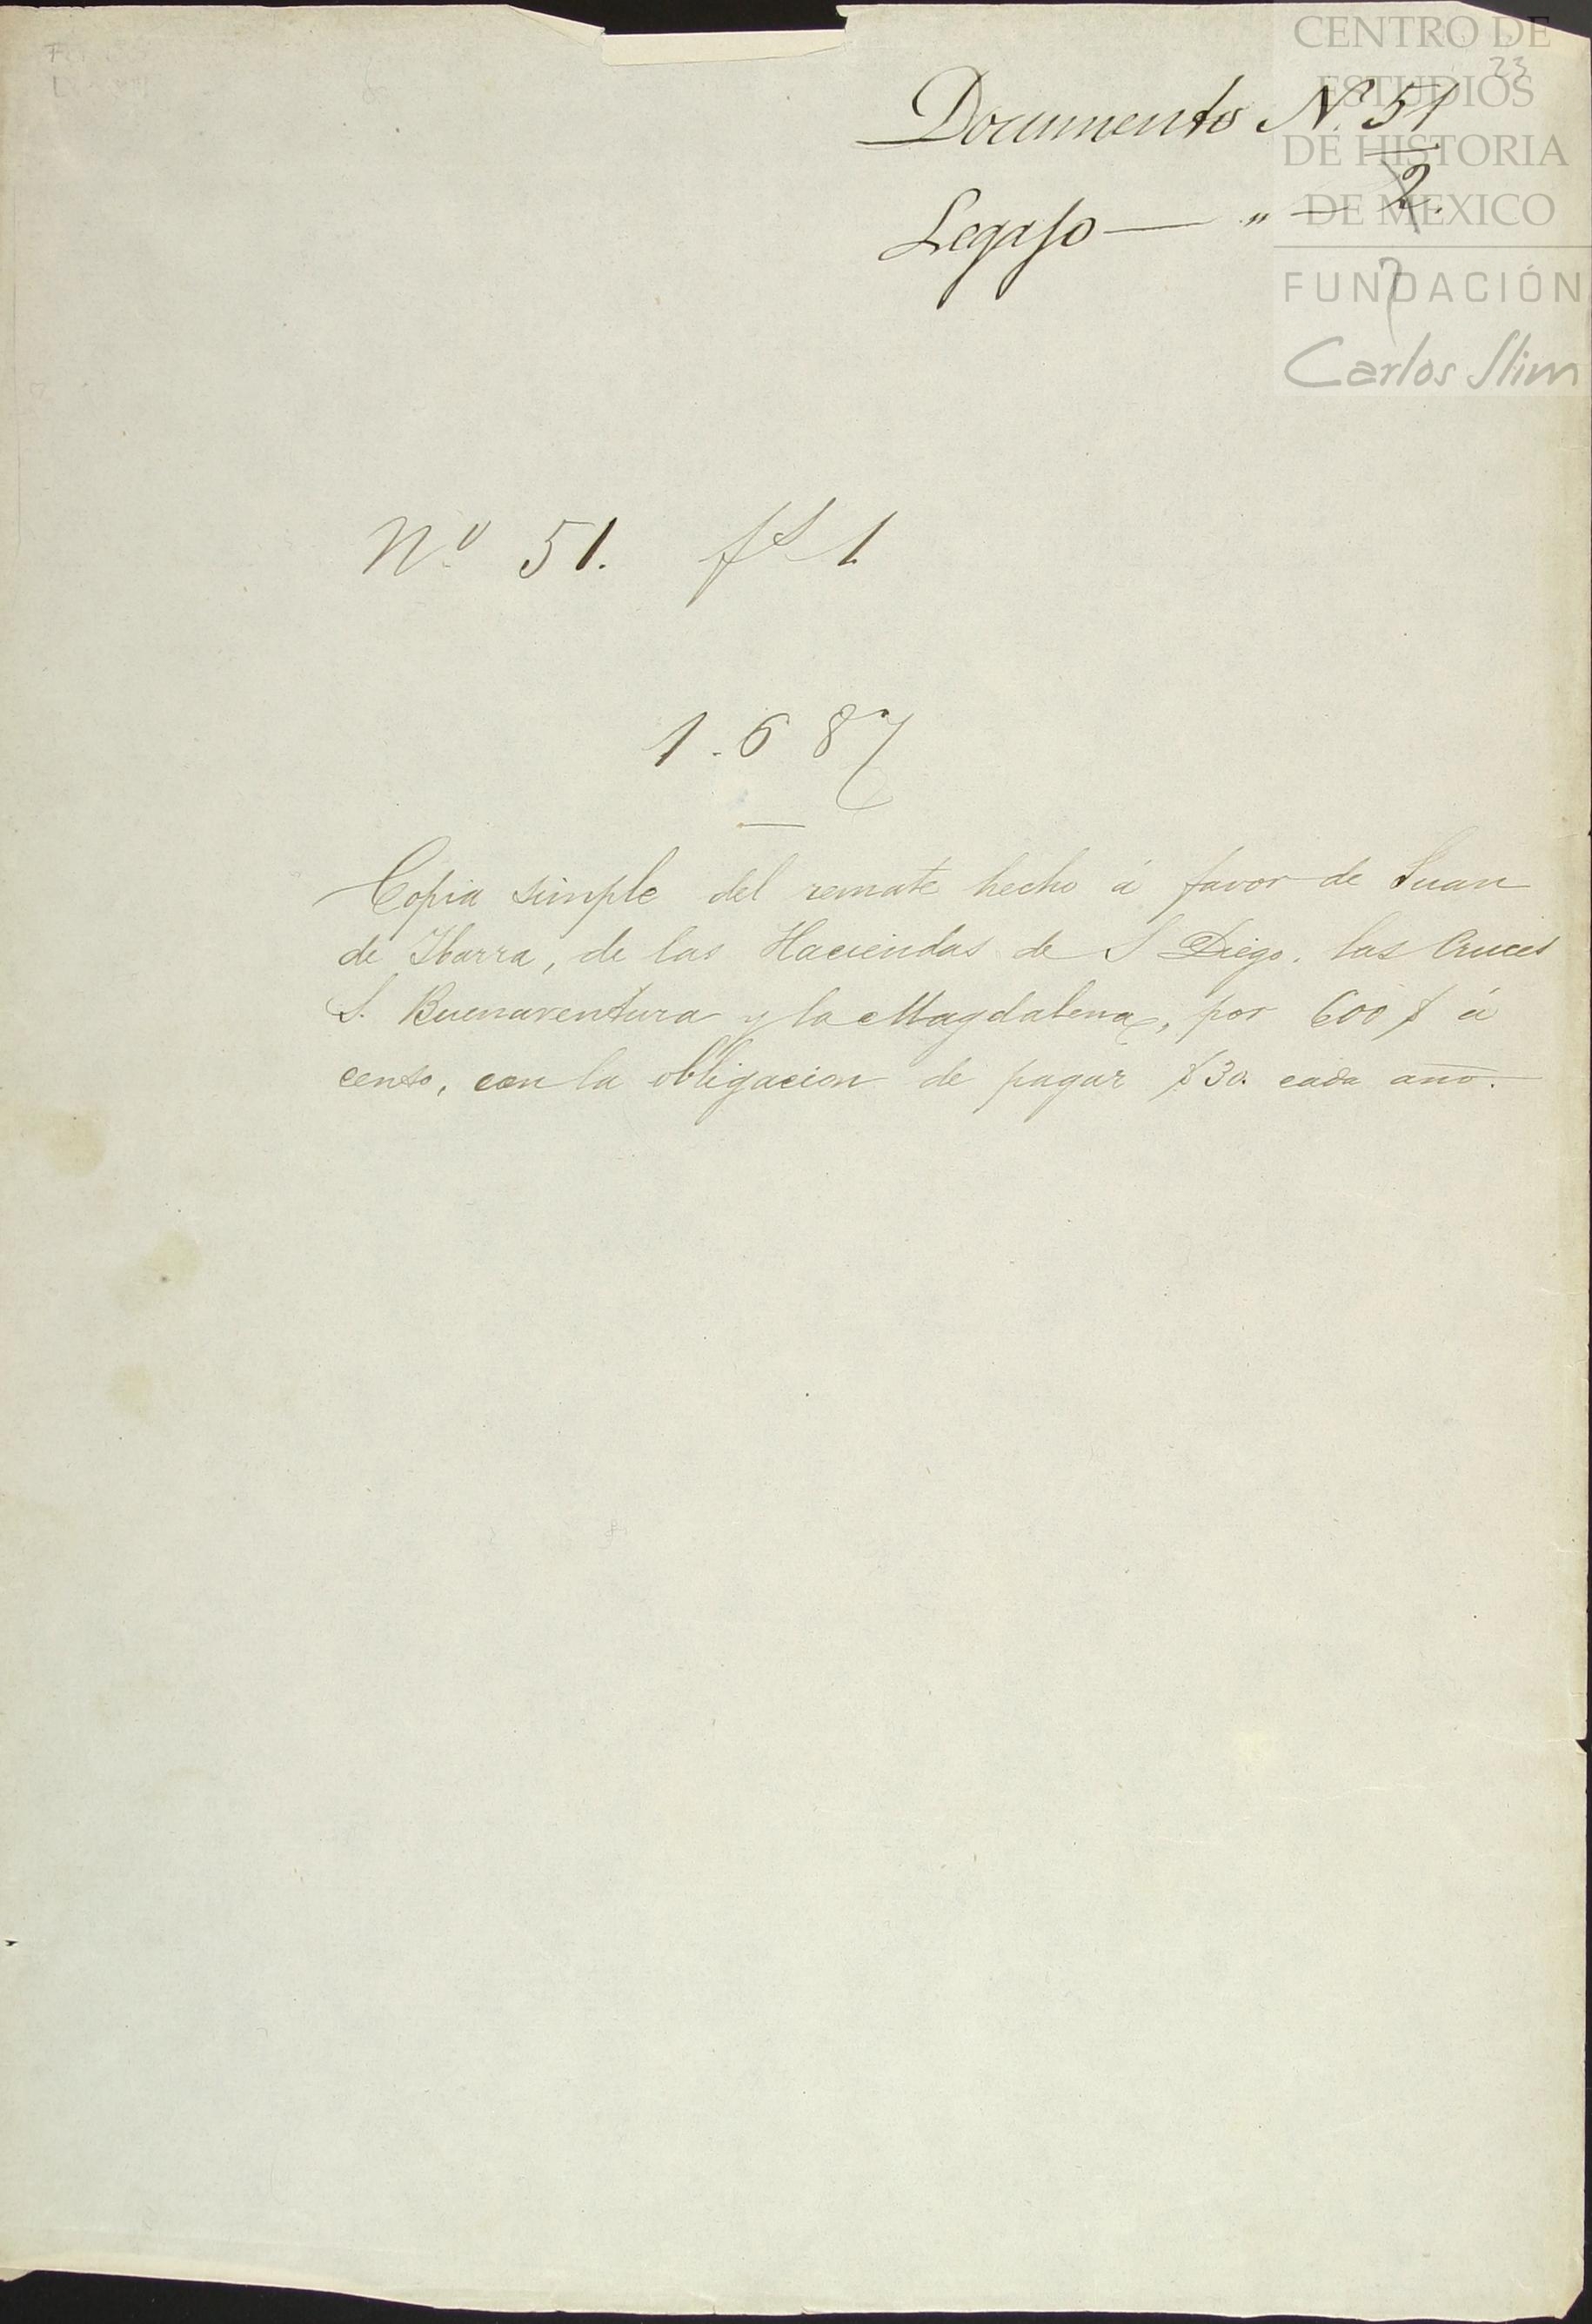 CENTRO DE
ESTUDIOS
DE HISTORIA
DE MEXICO
FUNDACIÓN
Carlos Slim
23
Documento Nº 51
Legajo — " — 2.
Nº 51. fs 1
1.687
Copia simple del remate hecho á favor de Juan
de Ibarra, de las Haciendas de S Diego. las Cruces
S. Buenaventura y la Magdalena, por 600 $ á
censo, con la obligacion de pagar $30. cada año.